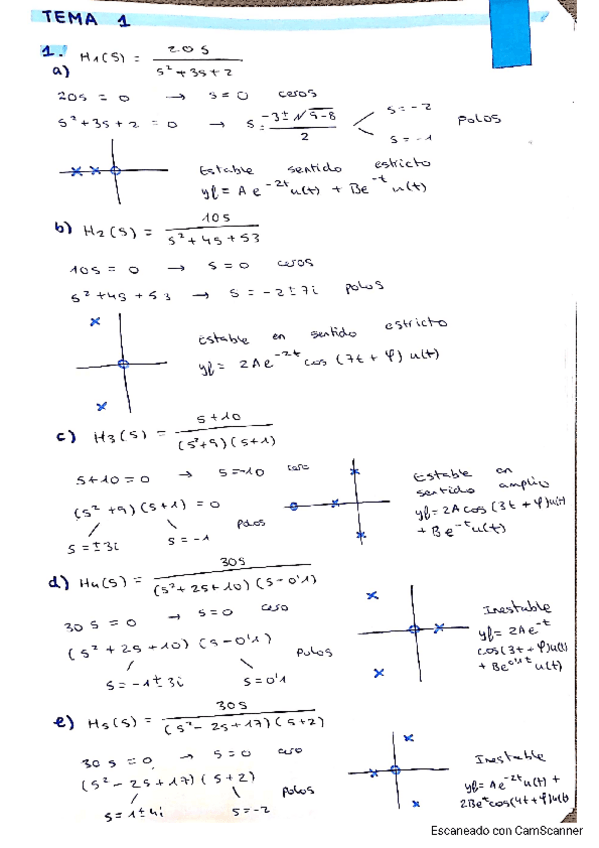 TEMA 1
1. H1(s) = 20s / s² + 3s + 2
a)
20s = 0 → s = 0 ceros
s² + 3s + 2 = 0 → s = -3 ± √9-8 / 2 s = -2 s = -1 Polos
Estable sentido estricto
yl = A e^-2t u(t) + B e^-t u(t)
b) H2(s) = 10s / s² + 4s + 53
10s = 0 → s = 0 ceros
s² + 4s + 53 → s = -2 ± 7i polos
estable en sentido estricto
yl = 2A e^-2t cos (7t + φ) u(t)
c) H3(s) = s+10 / (s²+9)(s+1)
s+10 = 0 → s = -10 cero
(s² + 9)(s+1) = 0
s = ±3i s = -1 Polos
Estable en
sentido amplio
yl = 2A cos (3t + φ) u(t)
+ B e^-t u(t)
d) H4(s) = 30s / (s² + 2s + 10)(s - 0'1)
30s = 0 → s = 0 cero
(s² + 2s + 10)(s - 0'1)
s = -1 ± 3i s = 0'1 Polos
Inestable
yl = 2A e^-t
cos(3t + φ) u(t)
+ B e^0'1t u(t)
e) H5(s) = 30s / (s² - 2s + 17)(s + 2)
30s = 0 → s = 0 cero
(s² - 2s + 17)(s + 2)
s = 1 ± 4i s = -2 Polos
Inestable
yl = A e^-2t u(t) +
2B e^t cos(4t + φ) u(t)
Escaneado con CamScanner